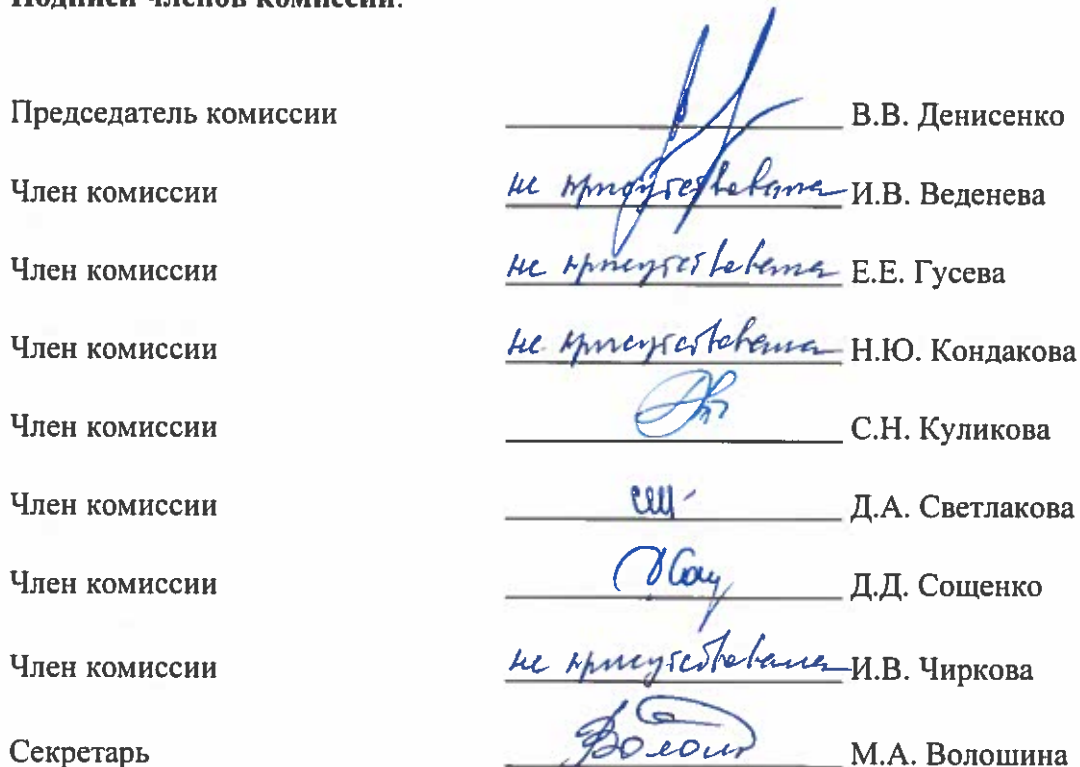 Подписи членов комиссии:
Председатель комиссии В.В. Денисенко
Член комиссии не присутствовала И.В. Веденева
Член комиссии не присутствовала Е.Е. Гусева
Член комиссии не присутствовала Н.Ю. Кондакова
Член комиссии С.Н. Куликова
Член комиссии Д.А. Светлакова
Член комиссии Д.Д. Сощенко
Член комиссии не присутствовала И.В. Чиркова
Секретарь М.А. Волошина